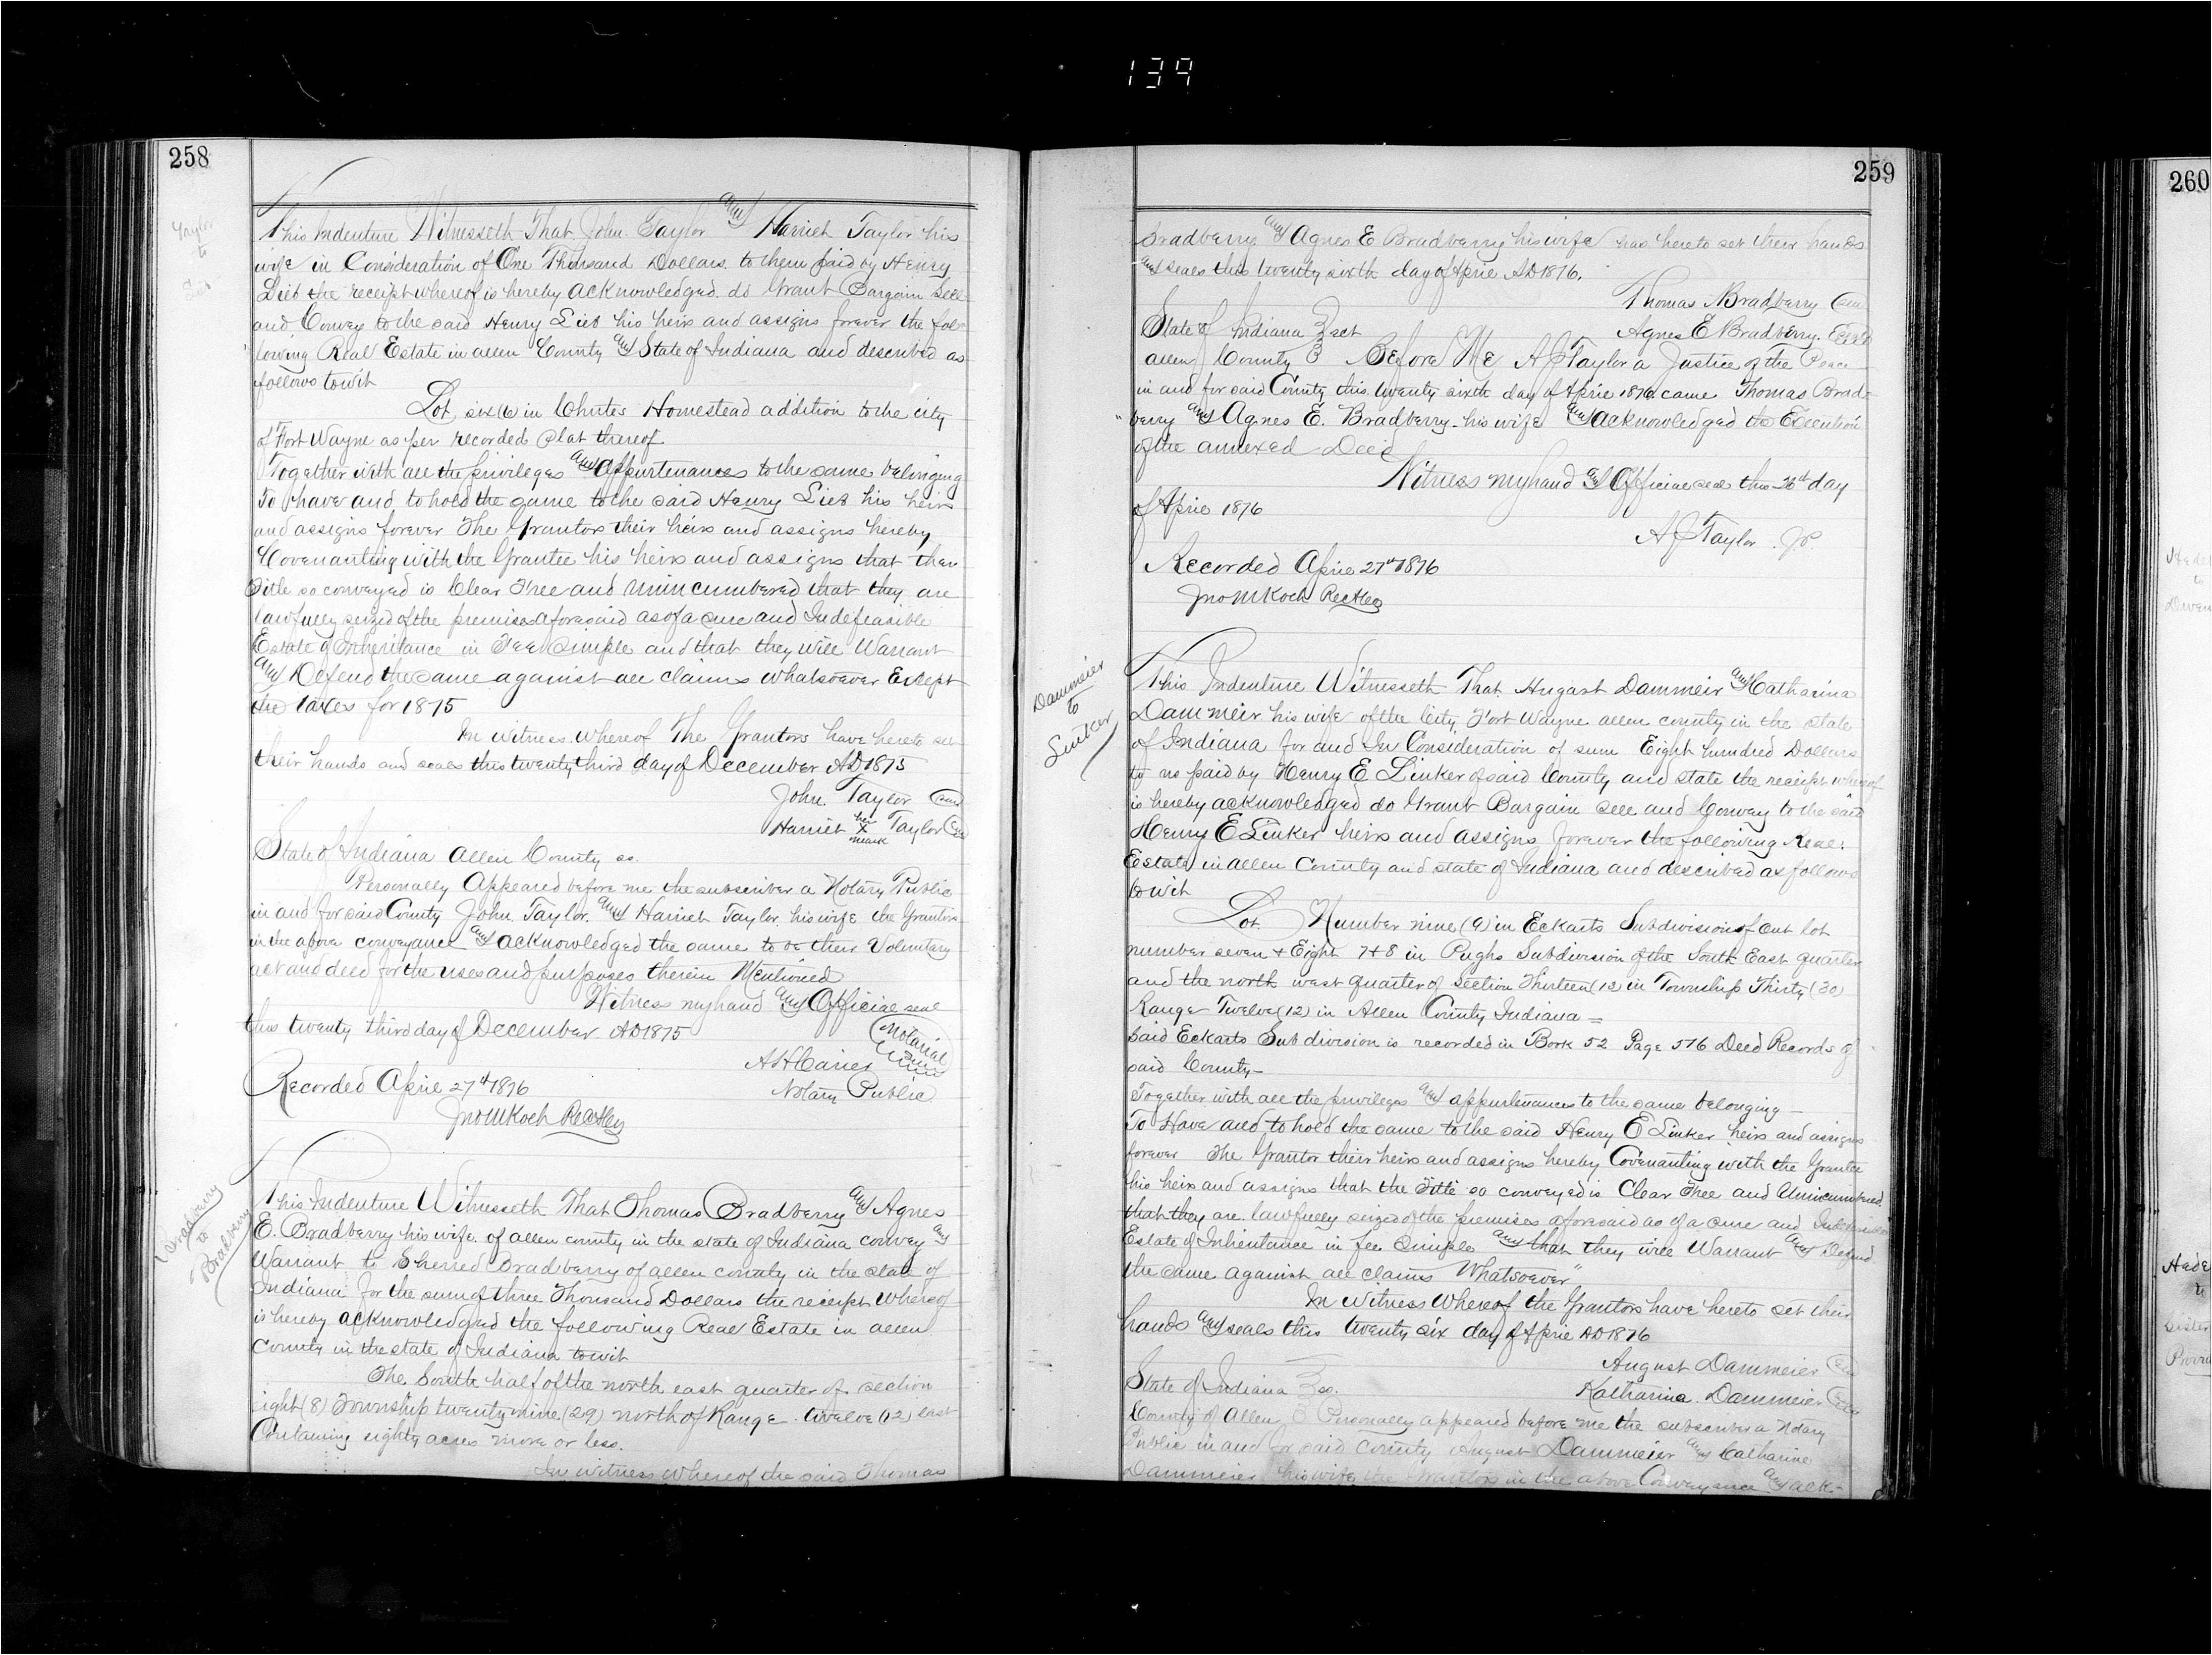 139
258
Taylor
to
Lieb
This Indenture Witnesseth That John Taylor and Harriet Taylor his
wife in Consideration of One Thousand Dollars to them paid by Henry
Lieb the receipt whereof is hereby acknowledged do Grant Bargain Sell
and Convey to the said Henry Lieb his heirs and assigns forever the fol-
lowing Real Estate in allen County and State of Indiana and described as
follows towit
Lot six (6) in Chutes Homestead addition to the city
of Fort Wayne as per recorded Plat thereof
Together with all the privileges and appurtenances to the same belonging
To have and to hold the same to the said Henry Lieb his heirs
and assigns forever The Grantors their heirs and assigns hereby
Covenanting with the Grantee his heirs and assigns that the
Title so conveyed is Clear Free and unincumbered that they are
lawfully seized of the premises aforesaid as of a sure and Indefeasible
Estate of Inheritance in Fee Simple and that they will Warrant
and Defend the same against all claims whatsoever Except
the taxes for 1875
In witness whereof The Grantors have hereto set
their hands and seals this twenty third day of December AD 1875
John Taylor (Seal)
Harriet her X mark Taylor (Seal)
State of Indiana Allen County ss.
Personally Appeared before me the subscriber a Notary Public
in and for said County John Taylor and Harriet Taylor his wife the Grantors
in the above conveyance and acknowledged the same to be their Voluntary
act and deed for the uses and purposes therein Mentioned
Witness my hand and Official seal
this twenty third day of December AD 1875
(Notarial
Seal)
Notary Public
Recorded April 27th 1876
Jno M Koch Rec
Bradberry
to
Bradberry
This Indenture Witnesseth That Thomas Bradberry and Agnes
E. Bradberry his wife of allen county in the state of Indiana convey and
Warrant to Sherred Bradberry of allen county in the state of
Indiana for the sum of three Thousand Dollars the receipt Whereof
is hereby acknowledged the following Real Estate in allen
County in the state of Indiana towit
The South half of the north east quarter of section
eight (8) Township twenty nine (29) north of Range twelve (12) east
Containing eighty acres more or less.
In witness whereof the said Thomas
259
Bradberry and Agnes E Bradberry his wife has hereto set their hands
and seals this twenty sixth day of April AD 1876.
Thomas Bradberry (Seal)
Agnes E Bradberry. (Seal)
State of Indiana } sct
allen County } Before Me A J Taylor a Justice of the Peace
in and for said County this twenty sixth day of April 1876 came Thomas Brad-
berry and Agnes E. Bradberry his wife and acknowledged the Execution
of the annexed Deed
Witness my hand and Official seal this 26th day
of April 1876
A J Taylor J.P.
Recorded April 27th 1876
Jno M Koch Rec
Dammeier
to
Linker
This Indenture Witnesseth That August Dammeir and Catharina
Dammeir his wife of the City Fort Wayne allen county in the state
of Indiana for and In Consideration of sum Eight hundred Dollars
to us paid by Henry E Linker of said County and state the receipt whereof
is hereby acknowledged do Grant Bargain sell and Convey to the said
Henry E Linker heirs and assigns forever the following Real
Estate in allen County and state of Indiana and described as follows
towit
Lot Number nine (9) in Eckarts Subdivision of out lot
number seven + Eight 7+8 in Pughs Subdivision of the South East quarter
and the north west quarter of section Thirteen (13) in Township Thirty (30)
Range Twelve (12) in Allen County Indiana =
Said Eckarts Subdivision is recorded in Book 52 Page 576 Deed Records of
said County—
Together with all the privileges and appurtenances to the same belonging—
To Have and to hold the same to the said Henry E Linker heirs and assigns
forever The Grantor their heirs and assigns hereby Covenanting with the Grantee
his heirs and assigns that the Title so conveyed is Clear Free and Unincumbered
that they are lawfully seized of the premises aforesaid as of a sure and Indefeasible
Estate of Inheritance in fee Simple and that they will Warrant and Defend
the same against all claims Whatsoever"
In witness Whereof the Grantors have hereto set their
hands and seals this twenty six day of April AD 1876
August Dammeier (Seal)
Katharina Dammeier (Seal)
State of Indiana } ss.
County of Allen } Personally appeared before me the subscriber a Notary
Public in and for said County August Dammeier and Catharine
Dammeier his wife the Grantors in the above Conveyance and ack-
260